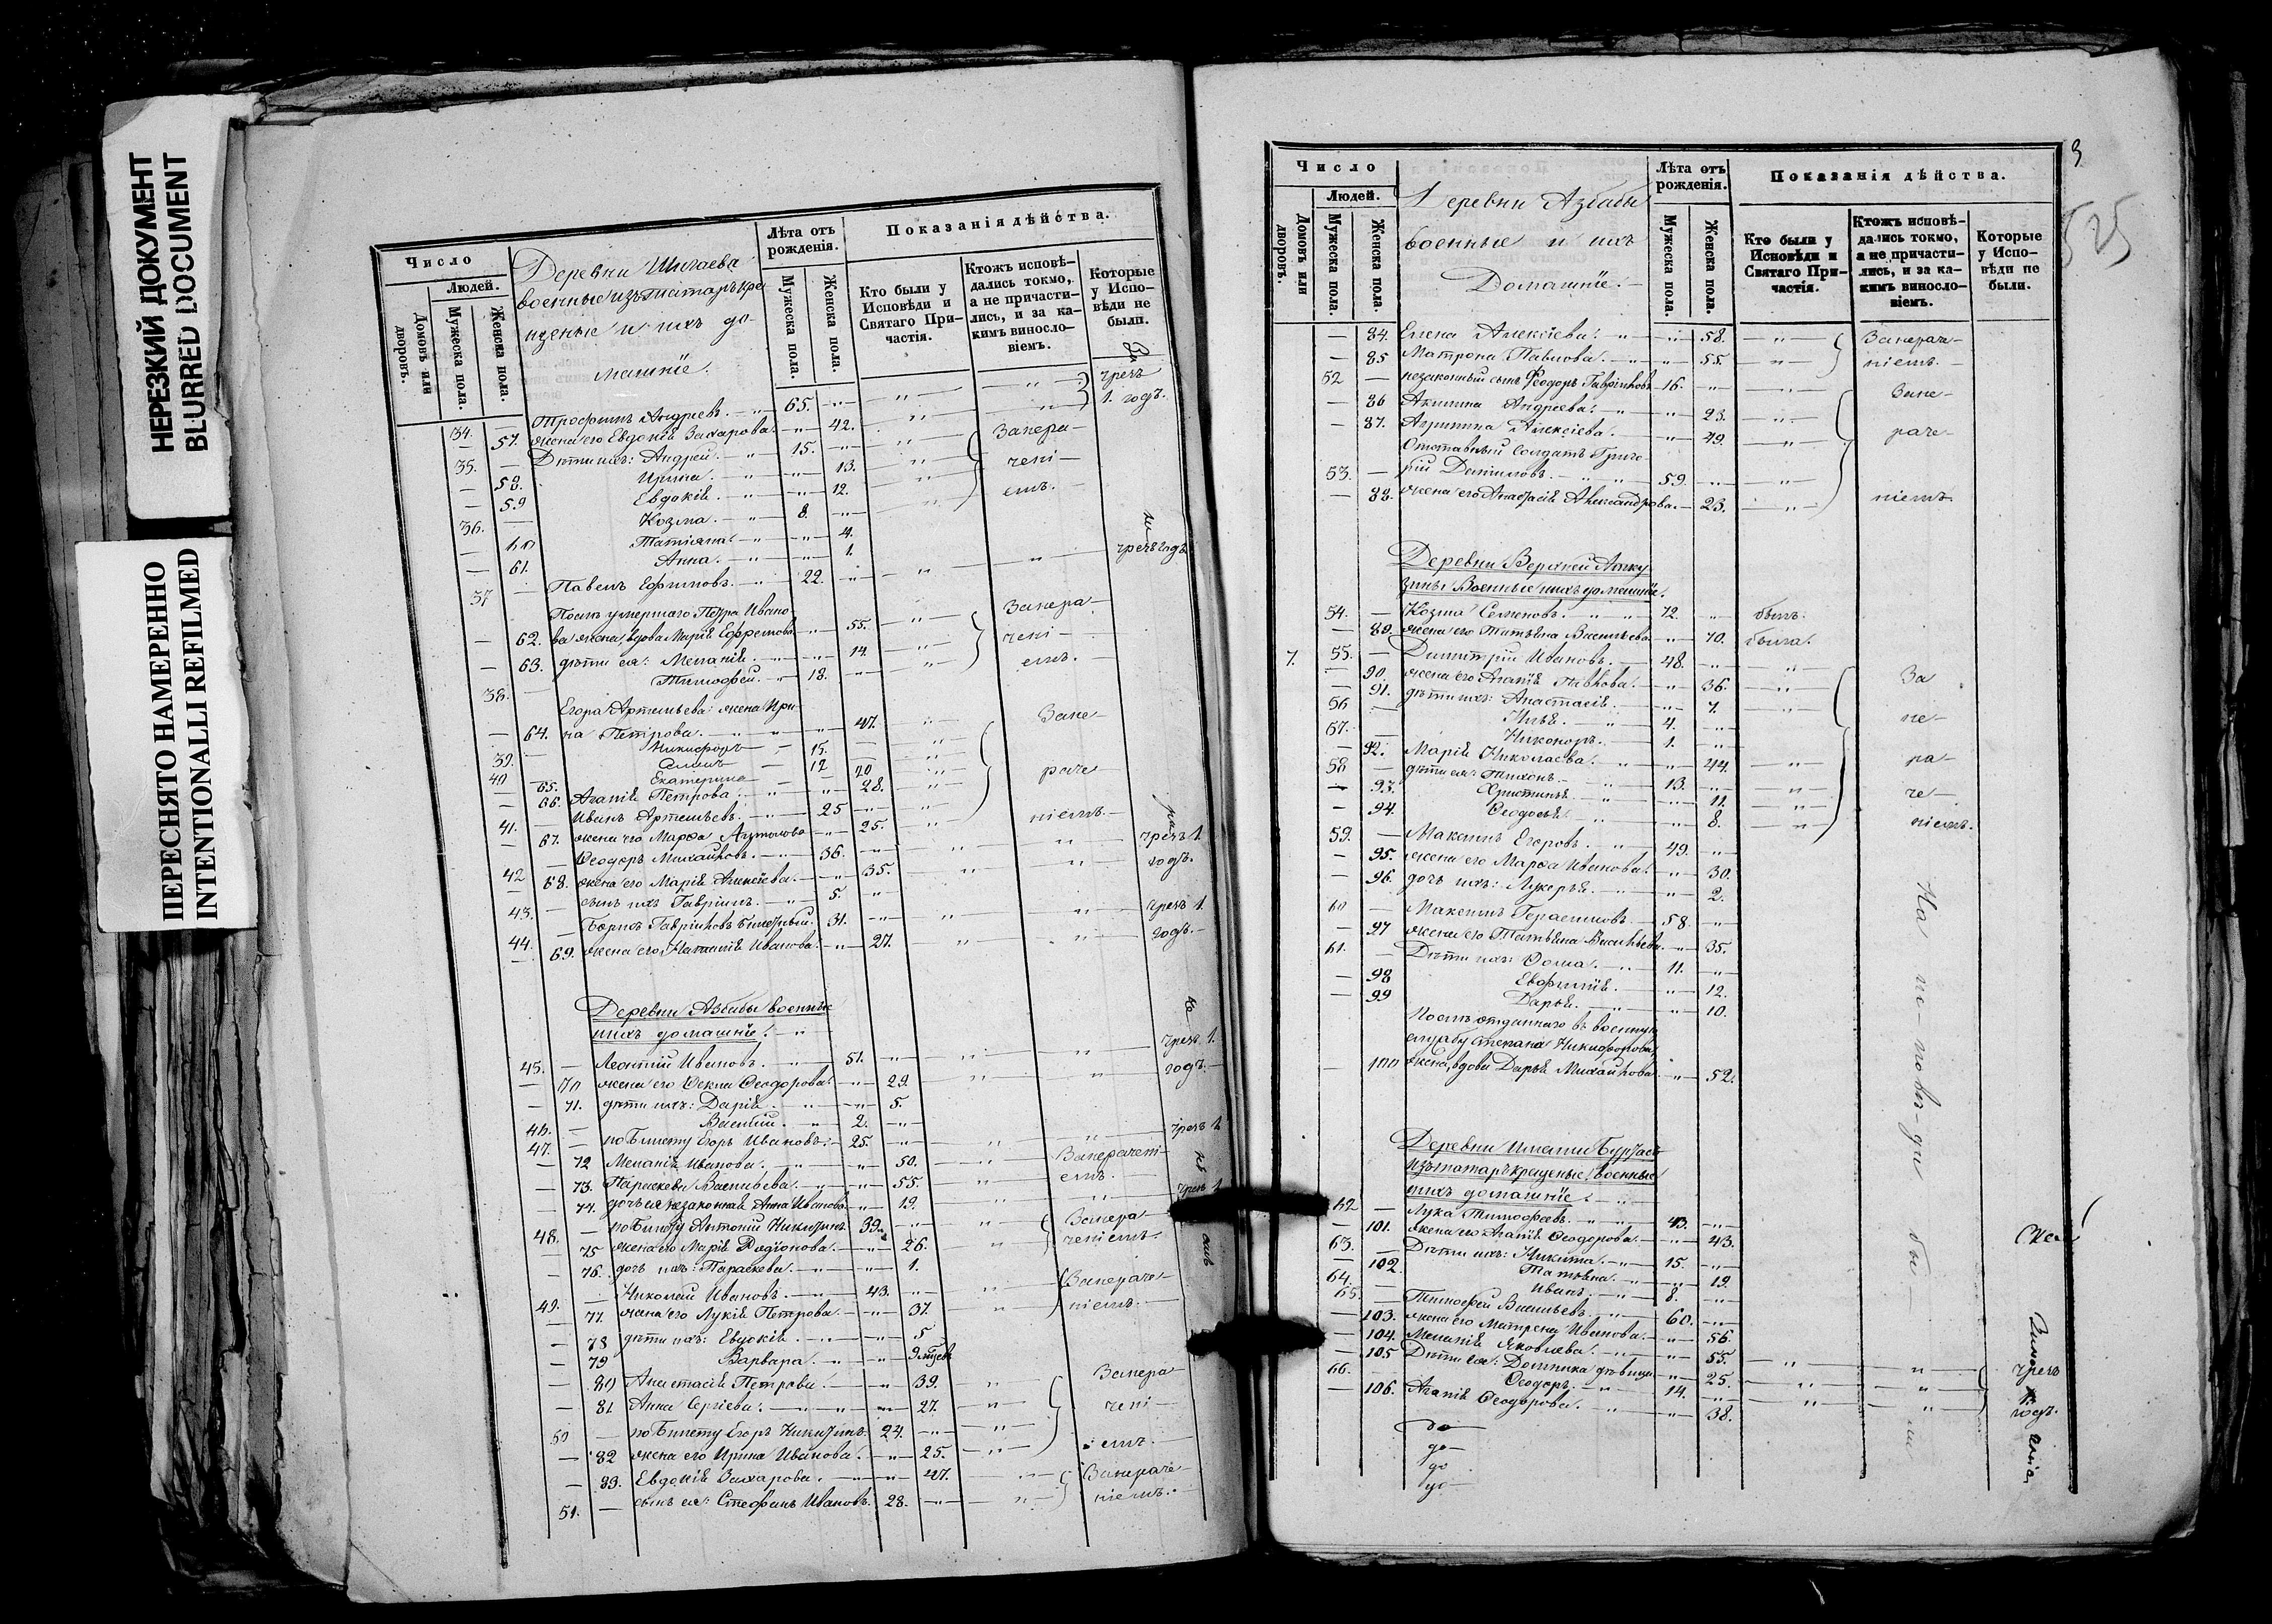 НЕРЕЗКИЙ ДОКУМЕНТ
BLURRED DOCUMENT
ПЕРЕСНЯТО НАМЕРЕННО
INTENTIONALLI REFILMED
Число
Людей.
Домовъ или дворовъ.
Мужеска пола.
Женска пола.
Деревни Шигаева
военные изъ татаръ кре
щеные и ихъ до-
машніе.
Лѣта отъ рожденія.
Мужеска пола.
Женска пола.
Показанія дѣйства.
Кто были у Исповѣди и Святаго Причастія.
Ктожъ исповѣдались токмо, а не причастились, и за какимъ винословіемъ.
Которые у Исповѣди не были.
34. — Трофимъ Андреевъ. 65. чрезъ
— 57. жена его Евдокія Захарова. 42. 1. годъ.
35. — Дѣти ихъ: Андрей. 15. Запера-
— 58. Ирина. 13. чені-
— 59 Евдокія. 12. емъ.
36. — Козма. 8.
— 60 Татіяна. 4.
— 61. Анна. 1.
37 — Павелъ Ефимовъ. 22. чрезъ годъ
Послѣ умершаго Петра Ивано-
— 62. ва жена, вдова Марія Ефремова 55. Запера-
— 63. дѣти ея: Меланія. 14. чені-
38. — Тимофей. 18. емъ.
Егора Артемьева жена Ири-
— 64. на Петрова. 47. Запе-
39. — Никифоръ 15.
40 — 12
— 65. Екатерина 20 раче
— 66. Агапія Петрова. 28.
41. — Иванъ Артемьевъ. 25 ніемъ.
— 67. жена его Марѳа 25.
42 — Ѳеодоръ Михайловъ. 36. чрезъ 1.
— 68. жена его Марія Алексѣева. 35. годъ.
43. — сынъ ихъ Гавріилъ. 5.
44. — Борисъ Гавріиловъ билетный. 31. чрезъ 1.
— 69. жена его Наталія Иванова. 27. годъ.
Деревни Азбабы военные
и ихъ домашніе.
45. — Леонтій Ивановъ. 51. чрезъ 1.
— 70 жена его Ѳекла Ѳеодорова. 29. годъ.
— 71. дѣти ихъ: Дарія. 5.
46. — Василій. 2.
47. — по билету Егоръ Ивановъ. 25. чрезъ 1
— 72 Меланія Иванова. 50. Заперачені-
— 73. Параскева Васильева. 55. емъ.
— 74. дочь ея незаконная Анна Иванова 19. чрезъ 1
48. — по билету Антоній Никитинъ 39. Запера-
— 75 жена его Марія Родіонова. 26. ченіемъ.
— 76. дочь ихъ: Параскева. 1.
49. — Николай Ивановъ. 43. Запераче-
— 77. жена его Лукія Петрова. 37. ніемъ.
— 78 дѣти ихъ: Евдокія. 5
— 79 Варвара. 9 мѣсев
— 80 Анастасія Петрова. 39. Запера-
— 81 Анна Сергіева. 27. чені-
50 — по билету Егоръ Никитинъ. 24.
— 82 жена его Ирина Иванова. 25. емъ.
— 83. Евдокія Захарова. 47. Запераче-
51. — сынъ ея: Стефанъ Ивановъ. 28. ніемъ.
3
525
Число
Людей.
Домовъ или дворовъ.
Мужеска пола.
Женска пола.
Деревни Азбабы
военные и ихъ
Домашніе.
Лѣта отъ рожденія.
Мужеска пола.
Женска пола.
Показанія дѣйства.
Кто были у Исповѣди и Святаго Причастія.
Ктожъ исповѣдались токмо, а не причастились, и за какимъ винословіемъ.
Которые у Исповѣди не были.
— 84. Елена Алексіева. 58. Запераче-
— 85 Матрона Павлова. 55. ніемъ.
52 — незаконный сынъ Ѳеодоръ Гавріиловъ 16. Запе-
— 86 Акилина Андреева. 23.
— 87. Агрипина Алексіева. 49. раче-
Отставный солдатъ Григо-
53. — рій Даниловъ. 59.
— 88. жена его Анастасія Александрова. 23. ніемъ.
Деревни Верхней Аттку
зины Военные и ихъ домашніе.
54. — Козма Семеновъ. 72. былъ.
— 89. жена его Татьяна Васильева 70. была.
7. 55. — Димитрій Ивановъ. 48.
— 90. жена его Агапія Павлова. 36. За
— 91. дѣти ихъ: Анастасія. 7.
56 — Илья. 4. пе-
57. — Никоноръ. 1.
— 92. Марія Николаева. 44. ра-
58 — дѣти ея: Тихонъ. 13.
— 93. Христина. 11. че-
— 94. Ѳеодосья. 8. ніемъ.
59. — Максимъ Егоровъ. 49.
— 95. жена его Марѳа Иванова. 30.
— 96. дочь ихъ: Лукерья. 2.
60 — Максимъ Герасимовъ. 58.
— 97 жена его Татьяна Васильева. 35.
61. — Дѣти ихъ: Ѳома. 11.
— 98 Евфимія. 12.
— 99 Дарья. 10.
Послѣ отданнаго въ военную
службу Степана Никифорова
— 100 жена, вдова Дарья Михайлова 52.
На исповѣди не были
Деревни Имели Бурташъ
изъ татаръ крещеные, военные
и ихъ домашніе.
62 — Лука Тимофеевъ. 43.
— 101. жена его Агапія Ѳеодорова. 43.
63. — Дѣти ихъ: Никита. 15.
— 102. Татьяна. 19.
64. — Иванъ. 8.
65. — Тимофей Васильевъ 60.
— 103. жена его Матрена Иванова. 56.
— 104. Меланія Яковлева. 55.
— 105 Дѣти ея: Домника дѣвица 25. чрезъ
66. — Ѳеодоръ. 14. 1.
— 106. Агапія Ѳеодорова. 38. годъ.
до-
до-
до
до-